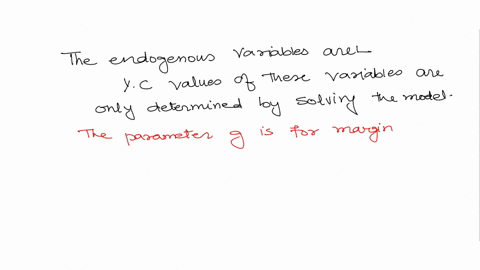 The endogenous variables are:-
Y.C values of these variables are
only determined by solving the model.
The parameter g is for margin